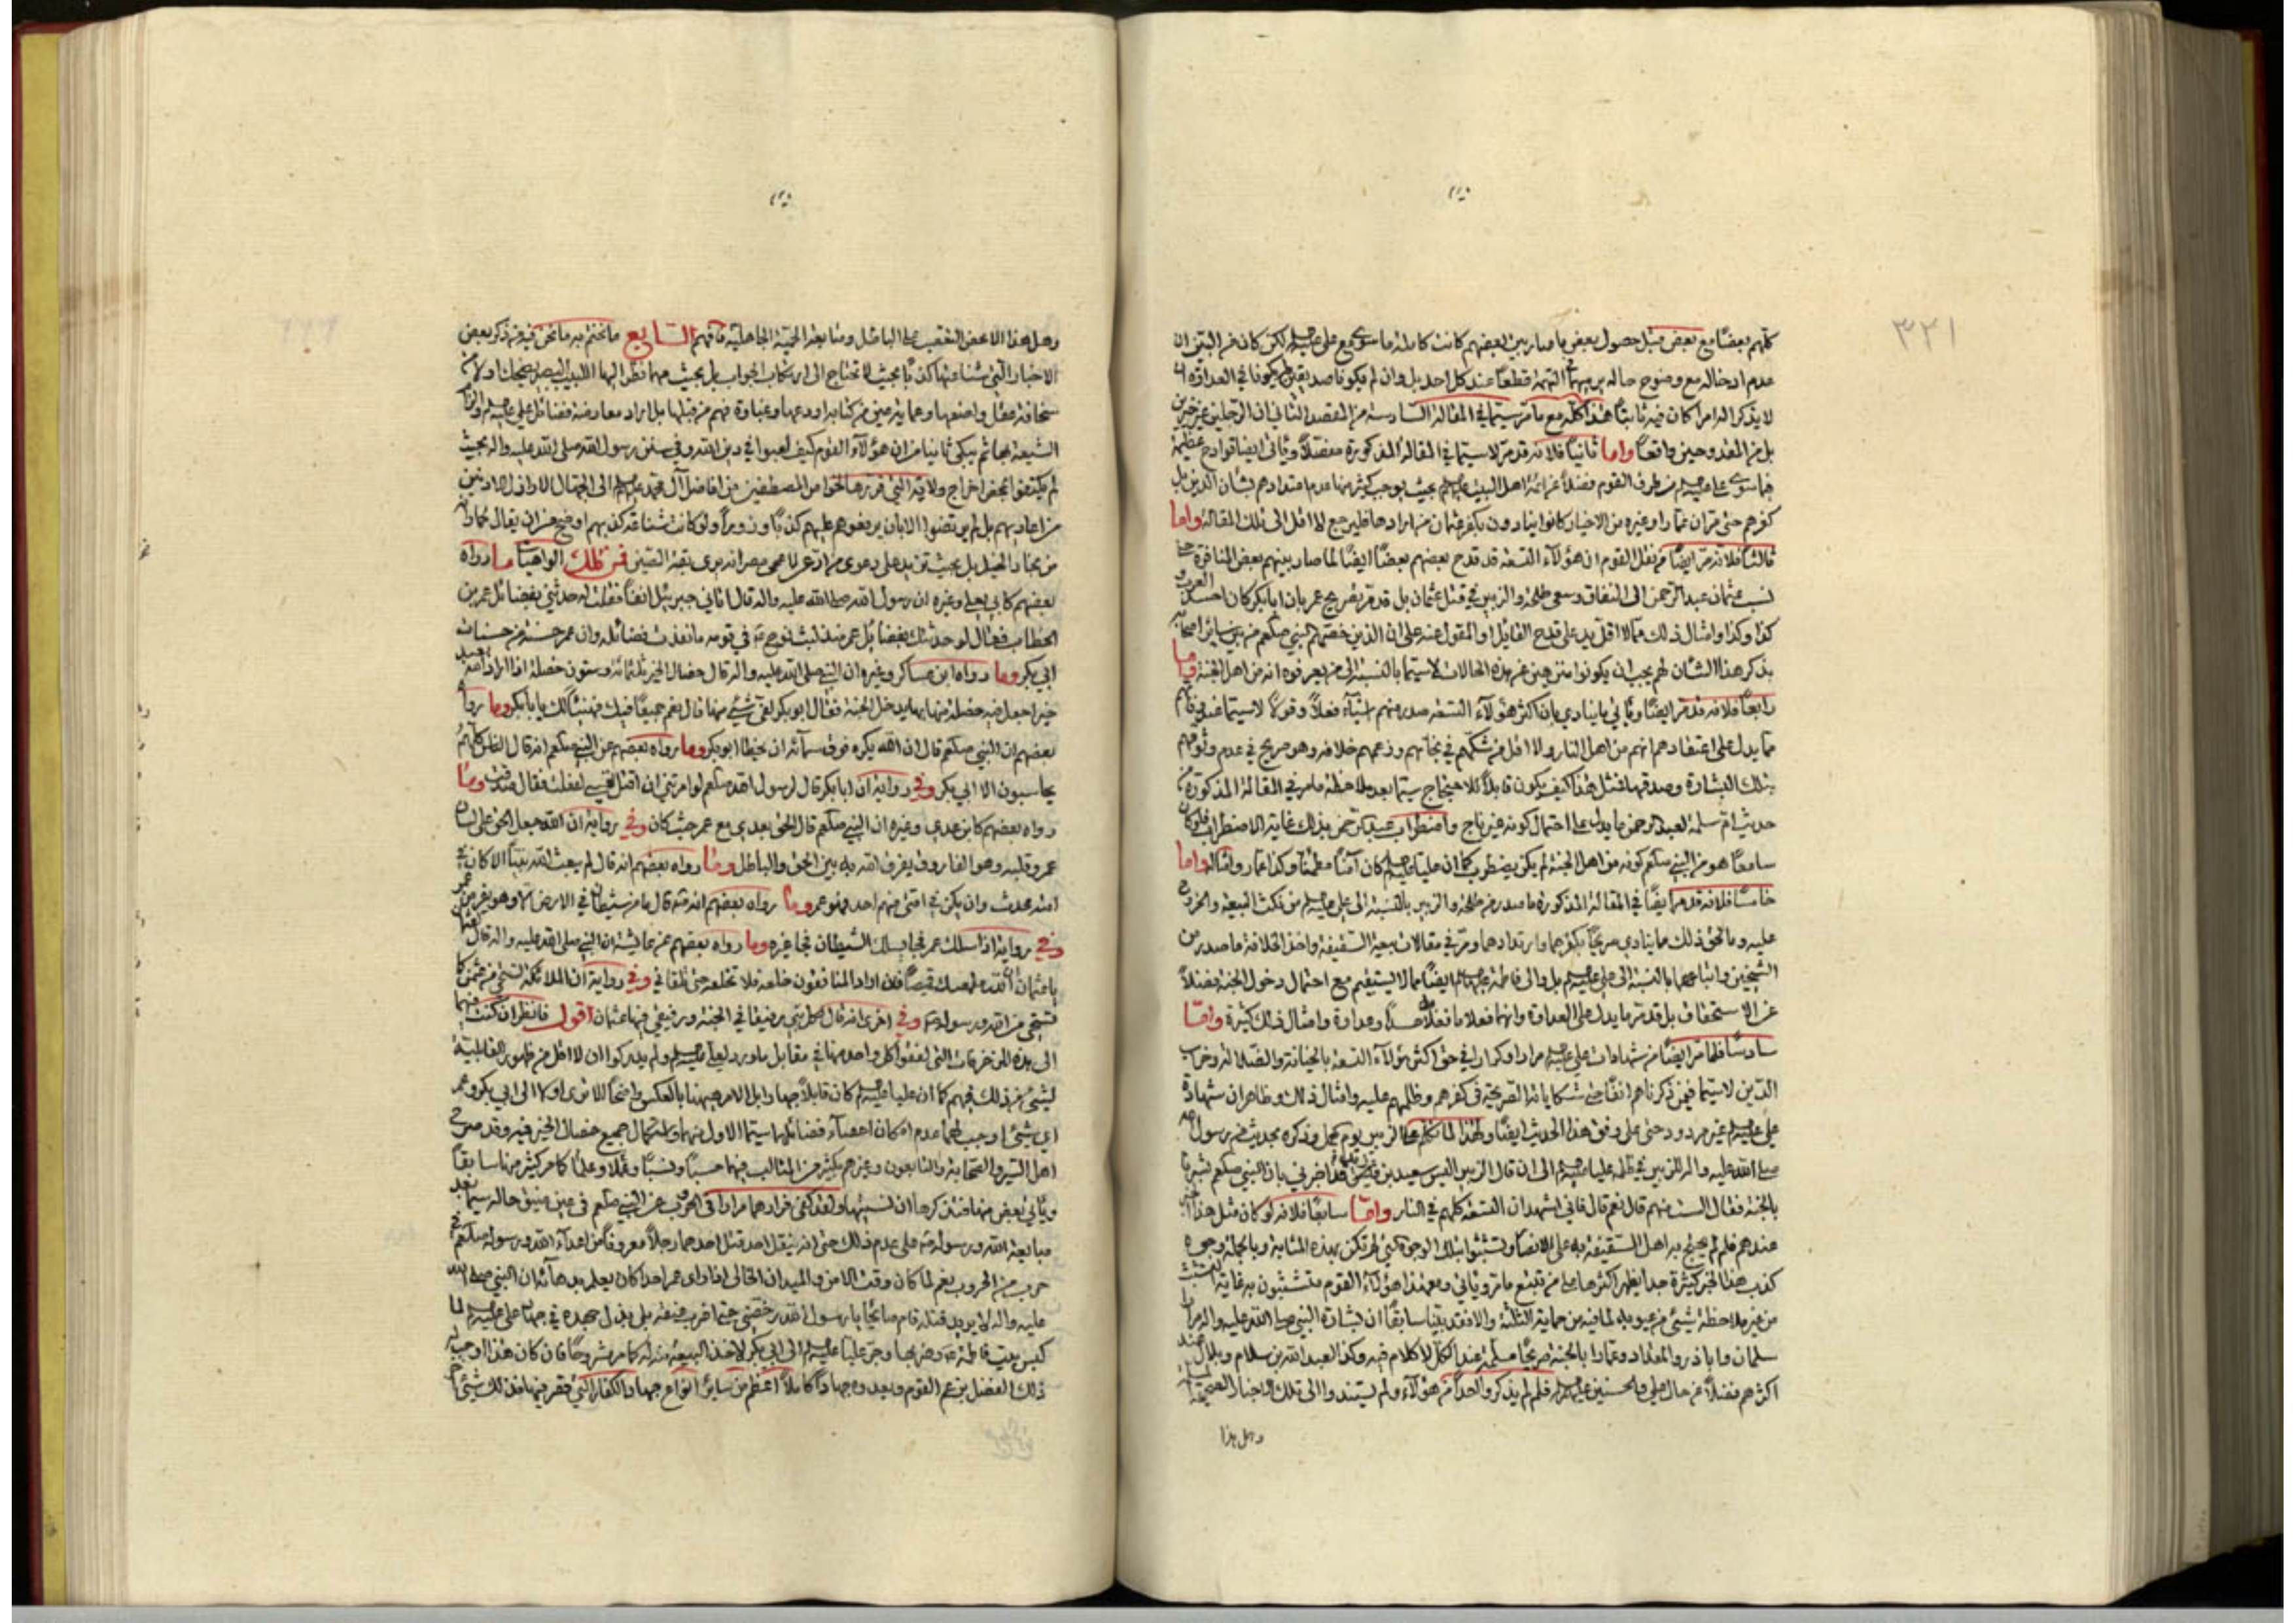 ٣٢١
كلهم بعضًا مع بعض قبل حصول بعض ما صار بين بعضهم كانت كاملة ما سوى مع علي لكن كان من البين ان
عدم ادخاله مع وضوح حاله من التهمة قطعًا عند كل احد بل وان لم يكونا في العداوة
لا يذكر الامرا كان فيه ثابتًا هذا كله مع ما مر سيما في المقالة السادسة من المقصد الثاني ان الرجلين غير خيرين
بل من المقدوحين واقعًا واما ثانيًا فلانه قد مر لا سيما في المقالة المذكورة مفصلًا ويأتي ايضًا قوادح عظيمة
فيما سوى علي من طرف القوم فضلًا عن ائمة اهل البيت بحيث يوجب كثير منها عدم اعتدادهم بشان الدين بل
كفرهم حتى مر ان عمارا وغيره من الاخيار كانوا ينادون بكفر عثمان من ارادها فليرجع لا اقل الى تلك المقالة واما
ثالثًا فلانه مر ايضًا من نقل القوم ان هؤلاء التسعة قد قدح بعضهم بعضًا ايضًا لما صار بينهم بعض المنافرة حتى
نسب عثمان عبد الرحمن الى النفاق وسعى طلحة والزبير في قتل عثمان بل قد مر تصريح عمر بان ابا بكر كان احسد
كذا وكذا وامثال ذلك مما لا اقل يدل على قدح القائل او المقول عنه على ان الذين خصهم النبي صلعم من بين سائر اصحابه
بذكر هذا الشان لهم يجب ان يكونوا منزهين عن هذه الحالات لا سيما بالنسبة الى من يعرفوه انه من اهل الجنة واما
رابعًا فلانه قد مر ايضًا ويأتي ما ينادي بان اكثر هؤلاء التسعة صدر منهم اشياء فعلًا وقولًا لا سيما عند وفاتهم
مما يدل على اعتقادهم انهم من اهل النار ولا اقل من شكهم في نجاتهم وزعمهم خلافه وهو صريح في عدم وثوقهم
بتلك البشارة وصدقها فمثل هذا كيف يكون قابلًا للاحتجاج سيما بعد ملاحظة ما مر في المقالة المذكورة من
حديث ام سلمة لعبد الرحمن ما يدل على احتمال كونه غير ناج واضطراب عبد الرحمن بذلك غاية الاضطراب فلو كان
سامعًا هو من النبي صلعم كونه من اهل الجنة لم يكن يضطرب كما ان عليا كان آمنًا مطمئنًا وكذا عمار وامثاله واما
خامسًا فلانه قد مر ايضًا في المقالة المذكورة ما صدر من طلحة والزبير بالنسبة الى علي من نكث البيعة والخروج
عليه وما لحق ذلك مما ينادي صريحًا بكفرهما وارتدادهما ومر في مقالات بيعة السقيفة واخذ الخلافة ما صدر من
الشيخين واتباعهما بالنسبة الى علي بل والى فاطمة ايضًا مما لا يستقيم مع احتمال دخول الجنة فضلًا
عن الاستحقاق بل قد مر ما يدل على العداوة وانهما فعلا ما فعلا حسدًا وعداوة وامثال ذلك كثيرة واما
سادسًا فلما مر ايضًا من شهادات علي مرارا وكرارا في حق اكثر هؤلاء التسعة بالخيانة والضلالة وخراب
الدين لا سيما فيمن ذكرناهم انفًا حتى شكاياته الصريحة في كفرهم وظلمهم عليه وامثال ذلك وظاهر ان شهادة
علي غير مردود حتى على وفق هذا الحديث ايضًا ولهذا لما تكلم مع الزبير يوم الجمل وذكره بحديثه من رسول الله
صلى الله عليه واله للزبير في ظلمه عليا الى ان قال الزبير اليس سعيد بن اخبرني بان النبي صلعم بشرنا
بالجنة فقال الست منهم قال نعم قال فاني اشهد ان التسعة كلهم في النار واما سابعًا فلانه لو كان مثل هذا
عندهم فلم لم يحتج به اهل السقيفة على الانصار وتشبثوا بتلك الوجوه التي لم تكن بهذه المثابة وبالجملة وجوه
كذب هذا الخبر كثيرة جدا يظهر اكثرها على من تتبع ما مر ويأتي ومع هذا هؤلاء القوم متشبثون به غاية التشبث
من غير ملاحظة شيء من عيوبه لما فيه من حماية الثلثة والا فقد بينا سابقًا ان بشارة النبي صلى الله عليه واله
سلمان وابا ذر والمقداد وعمارا بالجنة صريحًا مسلمة عند الكل لا كلام فيه وكذا لعبد الله بن سلام وبلال عند
اكثرهم فضلًا عن حال علي والحسنين فلم لم يذكروا احدًا من هؤلاء ولم يستندوا الى تلك الاخبار الصحيحة
وهل هذا
وهل هذا الا محض التعصب على الباطل ومتابعة الحمية الجاهلية فافهم السابع ما نختم به ما نحن فيه من ذكر بعض
الاخبار التي شناعتها كذبًا بحيث لا تحتاج الى ارتكاب الجواب بل بحيث مهما نظر اليها اللبيب البصير ضحك اولا من
سخافة عقل واضعها وعماية من كتابه اودعها وغباوة فهم من قبلها بل اراد معارضة فضائل علي والزام
الشيعة بها ثم يبكي ثانيا من ان هؤلاء القوم كيف لعبوا في دين الله وفي سنن رسول الله صلى الله عليه واله بحيث
لم يكتفوا بمحض اخراج ولاية التي قررها الخواص المصطفين من افاضل آل محمد الى الجهال الاراذل المعاديين
من اعاديهم بل لم يرتضوا الا بان يرفعوهم عليهم كذبًا وزورًا ولو كانت شناعة كذبهم اوضح من ان يقال
من بحار الحيل بل بحيث تزيد على دعوى من ادعى لاعمى مصر انه يرى بقة الصين فمن تلك الواهيات ما رواه
بعضهم كابي يعلى وغيره ان رسول الله صلى الله عليه واله قال اتاني جبرئيل انفًا فقلت له حدثني بفضائل عمر بن
الخطاب فقال لو حدثتك بفضائل عمر منذ لبث نوح في قومه ما نفدت فضائله وان عمر حسنة من حسنات
ابي بكر وما رواه ابن عساكر وغيره ان النبي صلى الله عليه واله قال خصال الخير ثلثمائة وستون خصلة اذا اراد الله بعبد
خيرا جعل فيه خصلة منها بها يدخل الجنة فقال ابو بكر افي شيء منها قال نعم جميعًا فيك فهنيئًا لك يا ابا بكر وما رواه
بعضهم ان النبي صلعم قال ان الله يكره فوق سمائه ان يخطا ابو بكر وما رواه بعضهم عن النبي صلعم انه قال الناس كلهم
يحاسبون الا ابي بكر وفي رواية ان ابا بكر قال لرسول الله صلعم لو امرتني ان اقتل نفسي لفعلت فقال صدقت وما
رواه بعضهم كابن عدي وغيره ان النبي صلعم قال الحق بعدي مع عمر حيث كان وفي رواية ان الله جعل الحق على لسان
عمر وقلبه وهو الفاروق يفرق الله به بين الحق والباطل وما رواه بعضهم انه قال لم يبعث الله نبيًا الا كان في
امته محدث وان يكن في امتي منهم احد فهو عمر وما رواه بعضهم انه قال ما من شيطان في الارض الا وهو يفر من عمر
وفي رواية اذا سلك عمر فجا يسلك الشيطان فجا غيره وما رواه بعضهم عن عايشة ان النبي صلى الله عليه واله قال
يا عثمان ان الله قمصك قميصًا فان اراد المنافقون خلعه فلا تخلعه حتى تلقاني وفي رواية ان الملائكة تستحي من عثمان كما
تستحي من الله ورسوله وفي اخرى انه قال لكل نبي رفيقا في الجنة ورفيقي فيها عثمان اقول فانظر ان كنت فهيما
الى هذه المزخرفات التي لفقوا كل واحد منها في مقابل ما ورد لعلي ولم يدركوا ان لا اقل من ظهور القابلية
لشيء من ذلك فيهم كما ان عليا كان قابلًا لها وابل الامر هيهنا بالعكس واضحًا الا ترى اولا الى ابي بكر وعمر
اي شيء اوجب لهما عدم امكان احصاء فضائلهما سيما الاول منهما واستكمال جميع خصال الخير فيه وقد صرح
اهل السير والصحابة والتابعون وغيرهم بكثير من المثالب فيهما حسبًا ونسبًا وعملًا وعلمًا كما مر كثير منها سابقًا
ويأتي بعض منها فتذكرها ان نسيتها ولقد كفى فرارهما مرارا في الحروب عن النبي صلعم في عين ضيق حاله سيما بعد
مبايعة الله ورسوله على عدم ذلك حتى انه لم ينقل احد قتل احدهما رجلًا معروفًا من اعداء الله ورسوله صلعم في
حرب من الحروب نعم لما كان وقت الامن والميدان الخالي اذا راى عمر احدا كان يعلم بدهائه ان النبي صلى الله
عليه واله لا يريد قتله قام صائحًا يا رسول الله رخصني حتى اضرب عنقه بل بذل جهده في جهاد علي لما
كبس بيت فاطمة وضربها وجر عليا الى ابي بكر لاخذ البيعة منه له كما مر مشروحًا فان كان هذا اوجب له
ذلك الفضل بزعم القوم وبعدوه جهادًا كاملًا اعظم من سائر انواع جهاد الكفار التي فقر فيها فذلك شيء